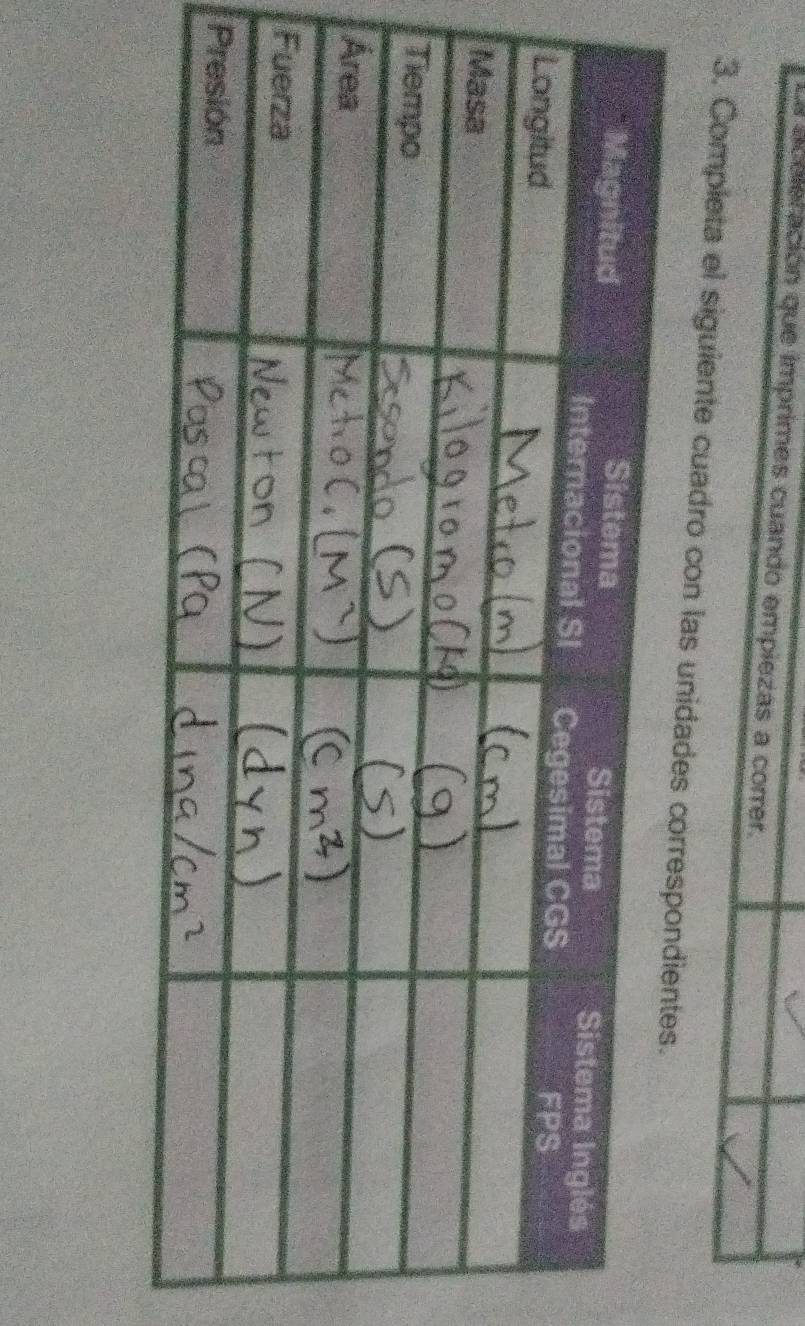 aceleración que imprimes cuando empiezas a correr.
3. Completa el siguiente cuadro con las unidades correspondientes.
Magnitud Sistema Internacional SI Sistema Cegesimal CGS Sistema Inglés FPS
Longitud Metro (m) (cm)
Masa Kilogramo (kg) (g)
Tiempo Segundo (s) (s)
Área Metro C. (M²) (cm²)
Fuerza Newton (N) (dyn)
Presión Pascal (Pa dina/cm²